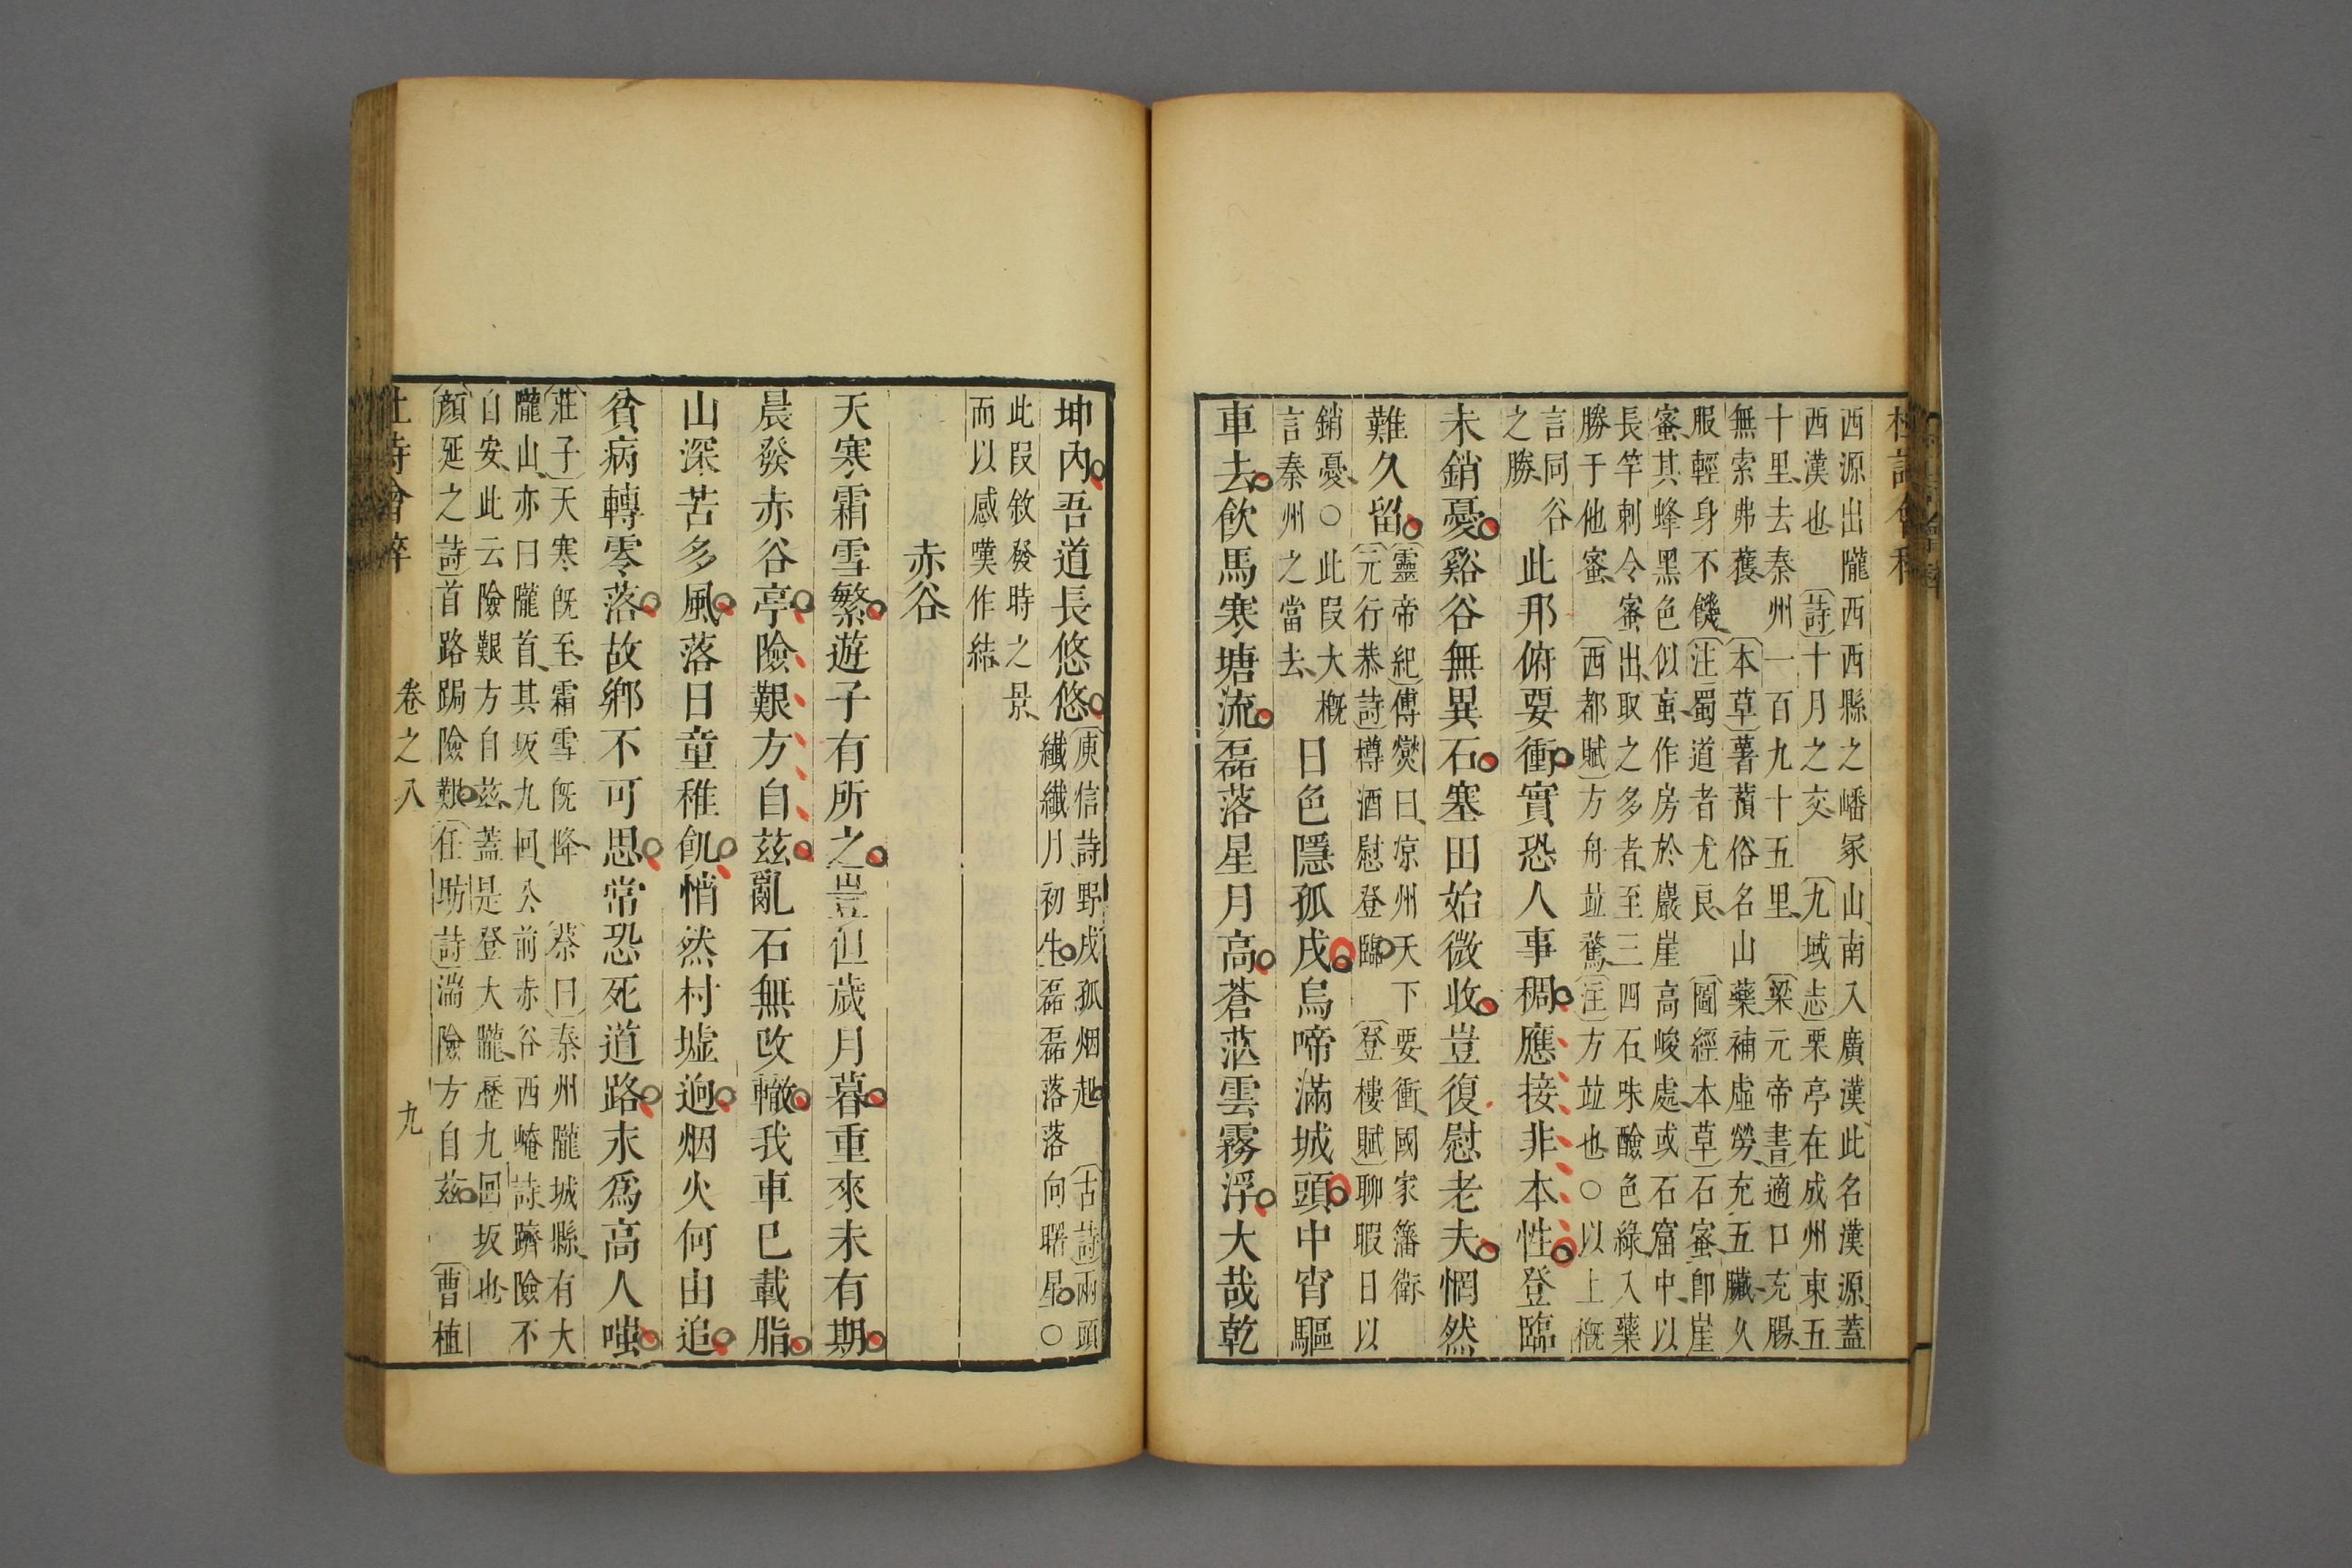 西源出隴西西縣之嶓冢山南入廣漢此名漢源蓋
西漢也〔詩〕十月之交〔九域志〕栗亭在成州東五
十里去秦州一百九十五里〔梁元帝書〕適口充腸
無索弗獲〔本草〕薯蕷俗名山藥補虛勞充五臟久
服輕身不饑〔注〕蜀道者尤良〔圖經本草〕石蜜卽崖
蜜其蜂黑色似䖟作房於巖崖高峻處或石窟中以
長竿刺令蜜出取之多者至三四石味醶色綠入藥
勝于他蜜〔西都賦〕方舟竝騖〔注〕方竝也○以上槪
言同谷
之勝
此邦俯要衝實恐人事稠應接非本性登臨
未銷憂谿谷無異石塞田始微收豈復慰老夫惘然
難久留
〔靈帝紀〕傅爕曰凉州天下要衝國家籓衛
〔元行恭詩〕樽酒慰登臨〔登樓賦〕聊暇日以
銷憂○此叚大槪
言秦州之當去
日色隱孤戍烏啼滿城頭中宵驅
車去飲馬寒塘流磊落星月高蒼茫雲霧浮大哉乾
坤內吾道長悠悠
〔庾信詩〕野戍孤烟起〔古詩〕兩頭
纖纖月初生磊磊落落向曙星○
此叚敘發時之景
而以感嘆作結
赤谷
天寒霜雪繁遊子有所之豈但歲月暮重來未有期
晨發赤谷亭險艱方自茲亂石無改轍我車已載脂
山深苦多風落日童稚飢悄然村墟逈烟火何由追
貧病轉零落故鄉不可思常恐死道路永爲高人嗤
〔莊子〕天寒旣至霜雪旣降〔蔡曰〕秦州隴城縣有大
隴山亦曰隴首其坂九回公前赤谷西崦詩躋險不
自安此云險艱方自茲蓋是登大隴歷九回坂也
〔顏延之詩〕首路跼險艱〔任昉詩〕湍險方自茲〔曹植
卷之八
九